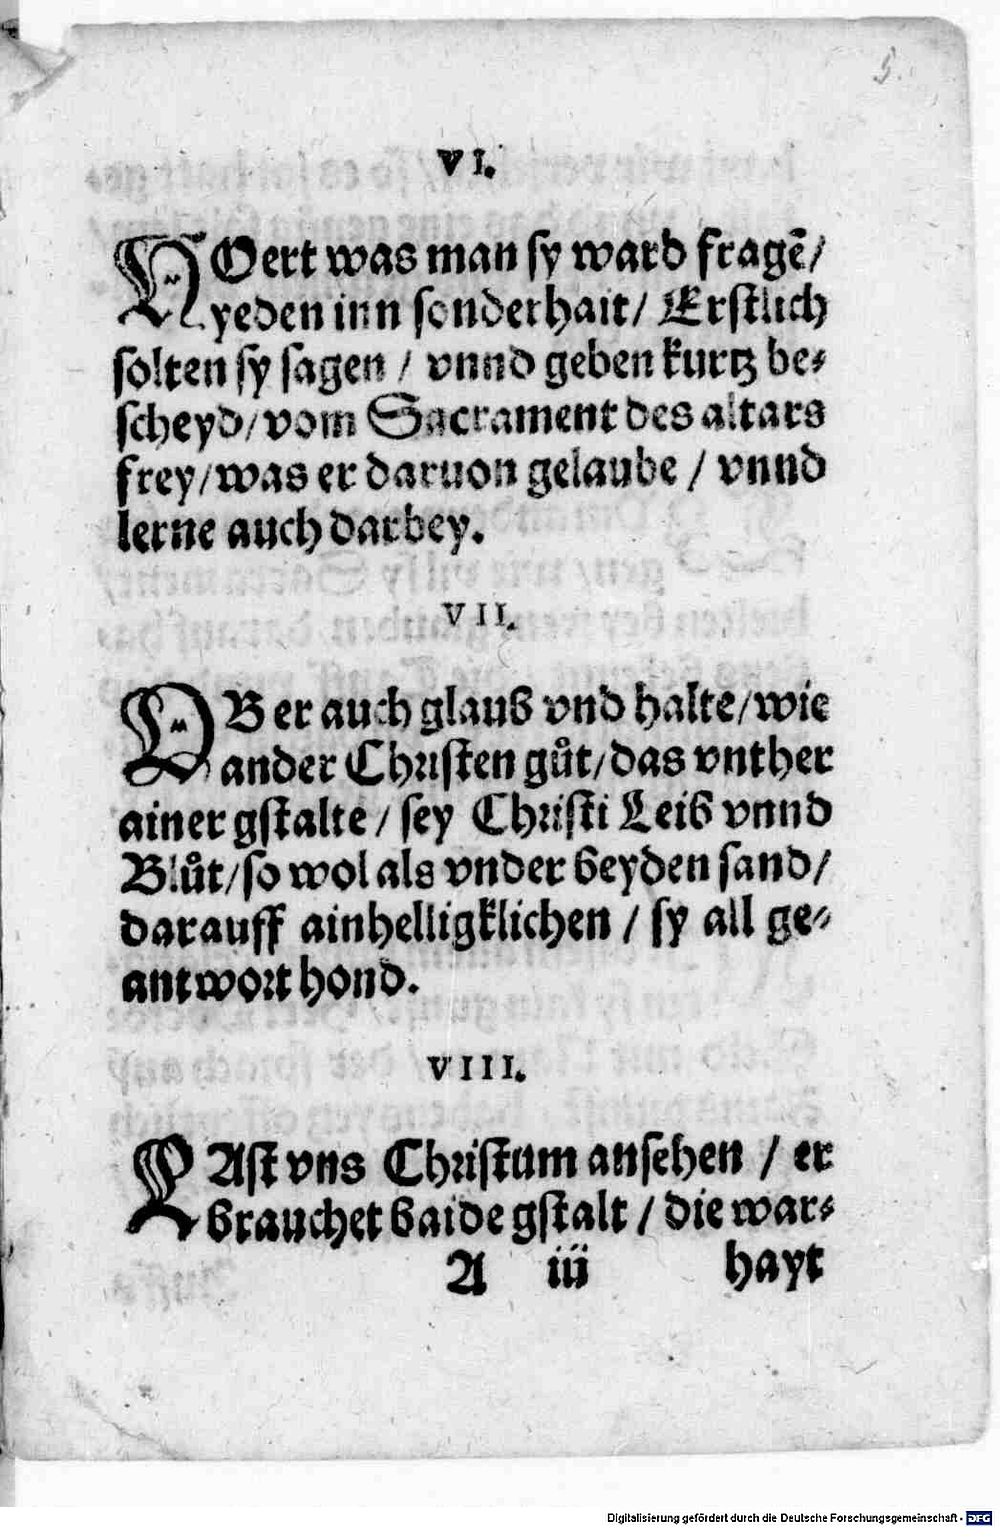 5.
VI.
HOert was man sy ward fragẽ/
yeden inn sonderhait/ Erstlich
solten sy sagen / vnnd geben kurtz be⸗
scheyd/ vom Sacrament des altars
frey/ was er daruon gelaube / vnnd
lerne auch darbey.
VII.
OB er auch glaub vnd halte/ wie
ander Christen gůt/ das vnther
ainer gstalte / sey Christi Leib vnnd
Blůt/ so wol als vnder beyden sand/
darauff ainhelligklichen / sy all ge⸗
antwort hond.
VIII.
LAst vns Christum ansehen / er
brauchet baide gstalt / die war⸗
A iij hayt
Digitalisierung gefördert durch die Deutsche Forschungsgemeinschaft - DFG